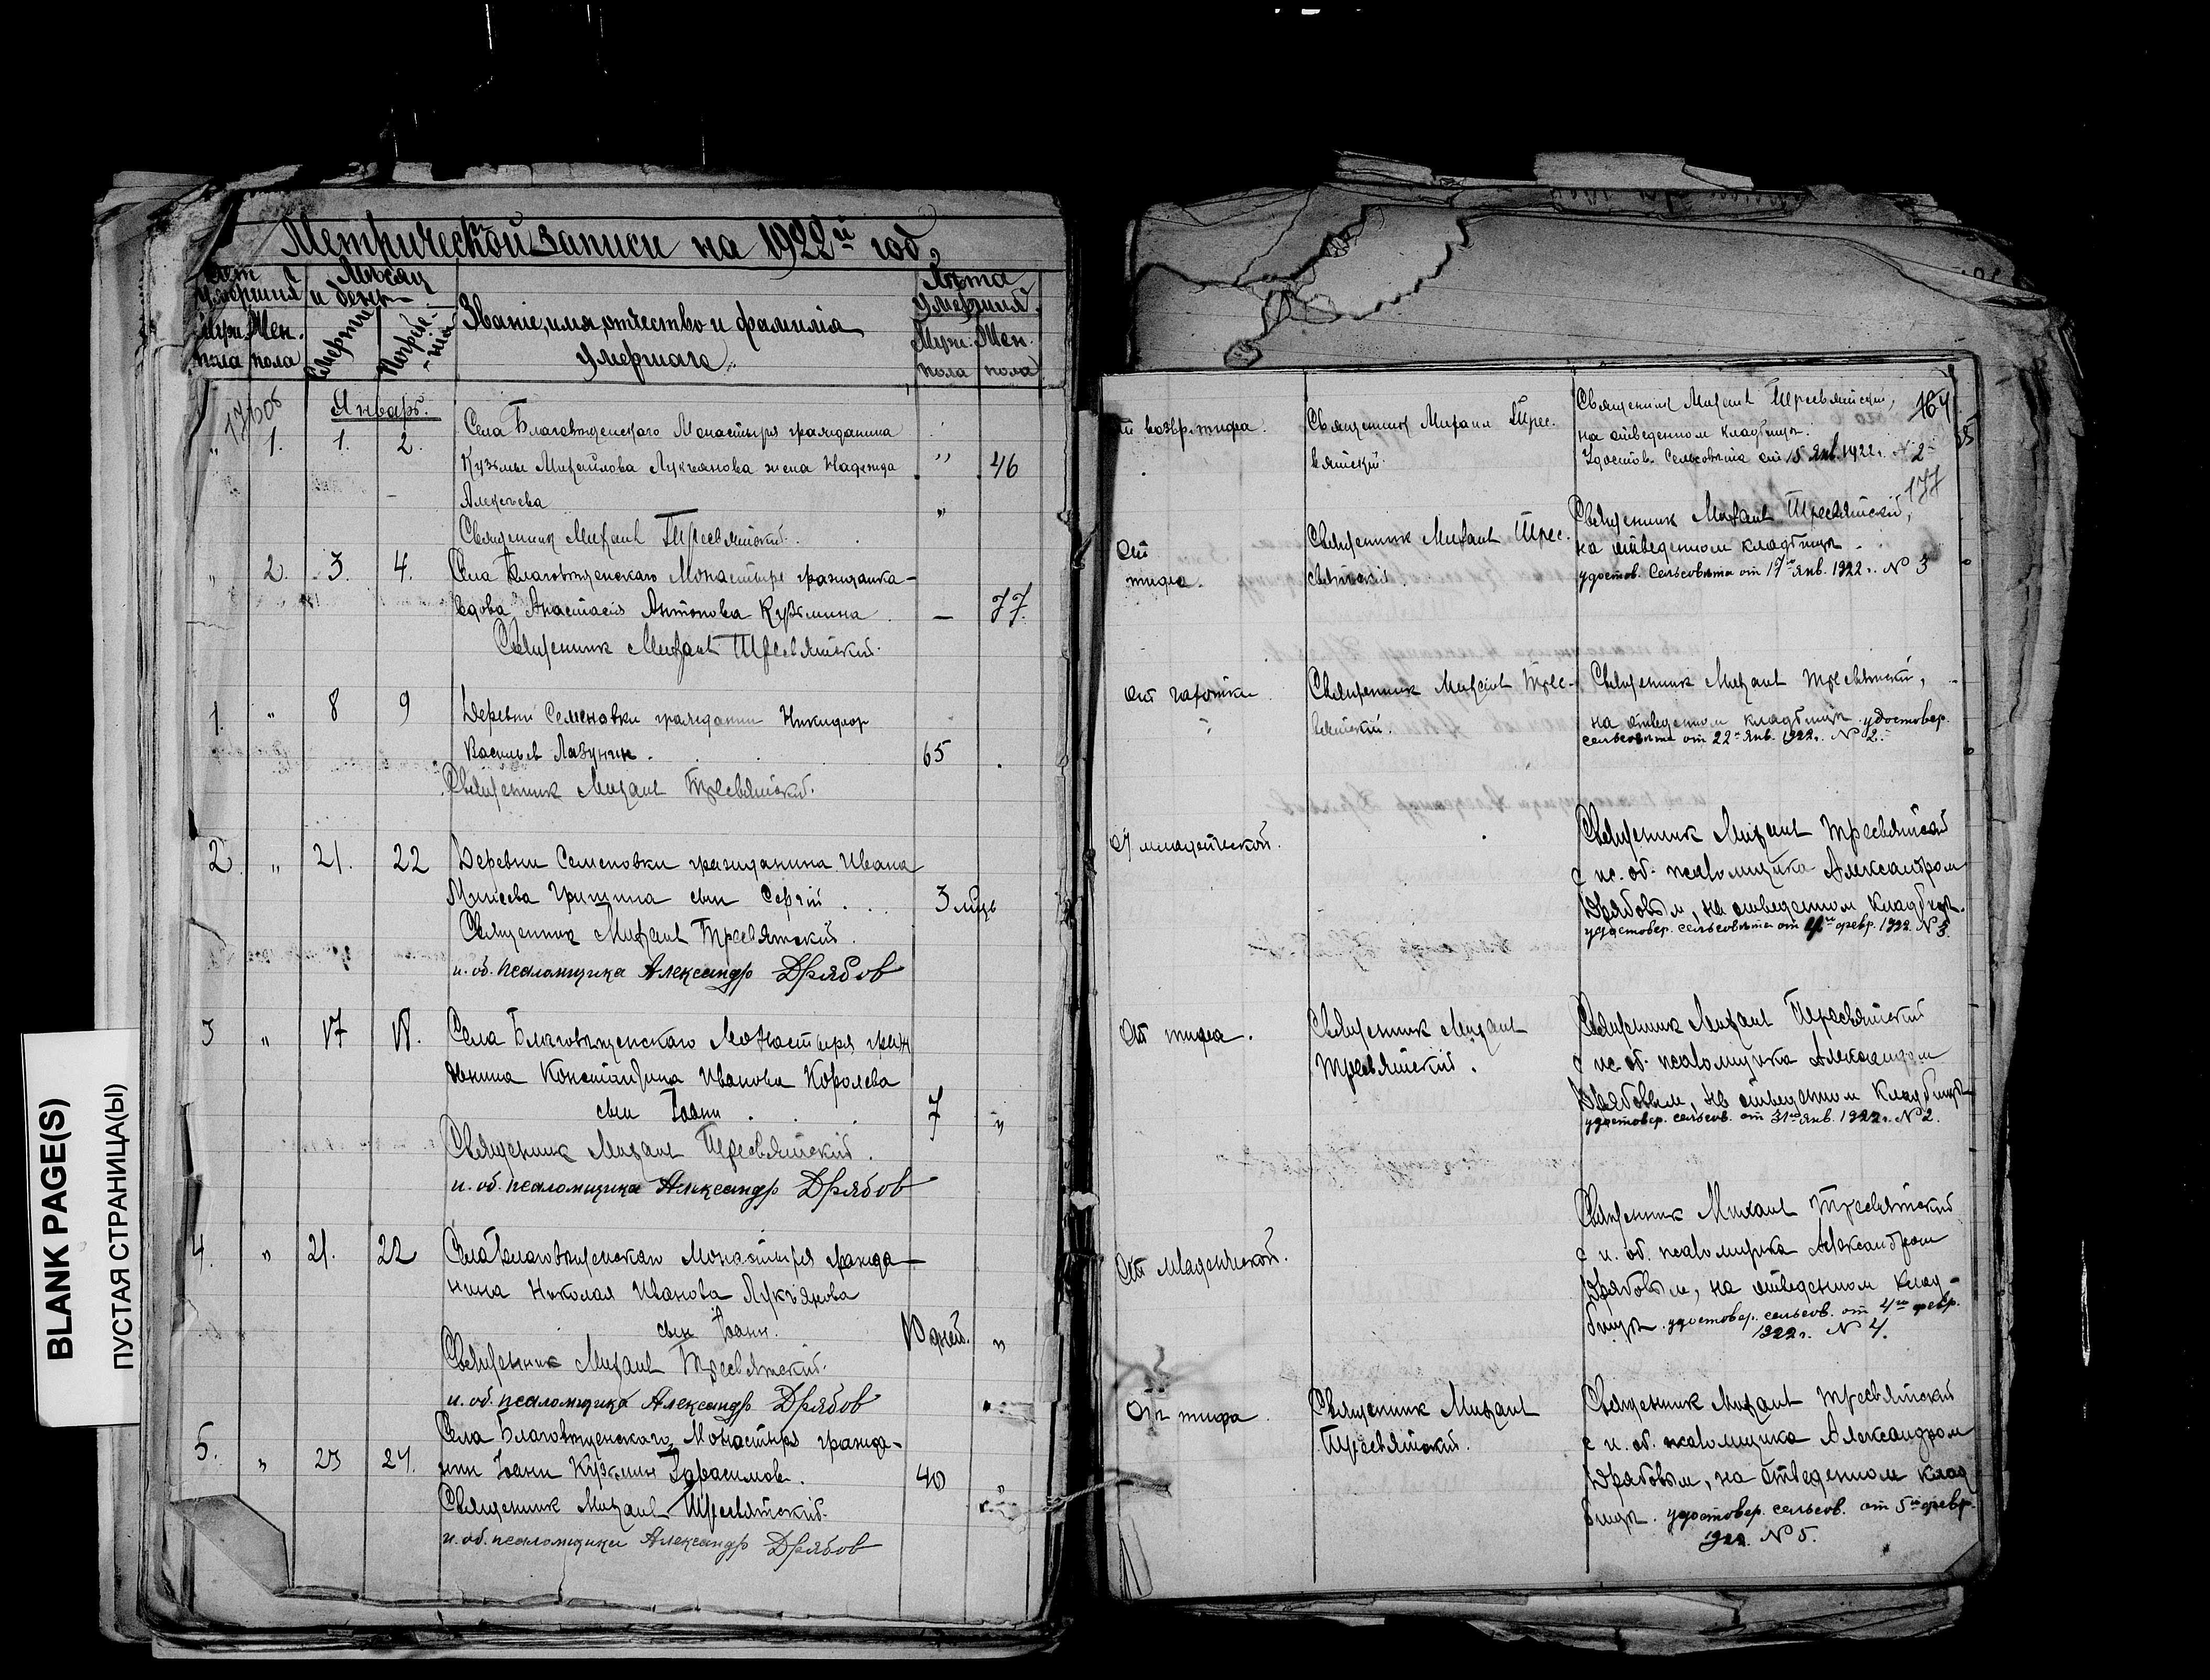 Метрической записи на 1922й год,
Счет умершихъ
Мѣсяц и день
Муж. пола
Жен. пола
Смерти
Погребе-нія
Званіе, имя, отчество и фамилія
умершаго.
Лѣта умершихъ
Муж. пола
Жен. пола
Январь.
" 1. 1. 2. Села Благовѣщенскаго Монастыря гражданина
Кузьмы Михайлова Лукьянова жена Надежда " 46
Алексѣева
Священник Михаил Тресвятский.
" 2. 3. 4. Села Благовѣщенскаго Монастыря гражданка
вдова Анастасія Антонова Кузьмина — 77.
Священник Михаил Тресвятский.
1. " 8 9 Деревни Семеновки гражданин Никифор
Васильев Лазунин. 65
Священник Михаил Тресвятский.
2 " 21. 22 Деревни Семеновки гражданина Ивана
Гришина сын Сергій 3 мѣс
Священник Михаил Тресвятский.
и. об. псаломщика Александр Дрябов
3 " 17 18. Села Благовѣщенскаго Монастыря граж
данина Константина Иванова Королева
сын Іоанн 7 "
Священник Михаил Тресвятский.
и. об. псаломщика Александр Дрябов
4. " 21. 22 Села Благовѣщенскаго Монастыря гражда-
нина Николая Иванова Лукьянова
сын Іоанн. 10 дней. "
Священник Михаил Тресвятский.
и. об. псаломщика Александр Дрябов
5. " 23 24. Села Благовѣщенскаго Монастыря гражда-
нин Іоанн Кузьмин Гарасимов. 40 "
Священник Михаил Тресвятский.
и. об. псаломщика Александр Дрябов
BLANK PAGE(S)
ПУСТАЯ СТРАНИЦА(Ы)
164
возвр. тифа.
Священник Михаил Трес-
вятский.
Священник Михаил Тресвятский,
на отведенном кладбищѣ.
Удостов. Сельсовѣта от 15 янв. 1922 г. № 2
177
От
тифа.
Священник Михаил Трес-
вятский.
Священник Михаил Тресвятский,
на отведенном кладбищѣ
удостов. Сельсовѣта от 17го янв. 1922 г. № 3
От чахотки.
Священник Михаил Трес-
вятский.
Священник Михаил Тресвятский,
на отведенном кладбищѣ. удостовер.
сельсовѣта от 22го янв. 1922 г. № 2.
От младенческой.
Священник Михаил Тресвятский
с ис. об. псаломщика Александром
Дрябовым, на отведенном кладбищѣ.
удостовер. сельсовѣта от 4го февр. 1922. № 3.
От тифа.
Священник Михаил
Тресвятский.
Священник Михаил Тресвятский
с ис. об. псаломщика Александром
Дрябовым, на отведенном кладбищѣ
удостовер. сельсов. от 31го янв. 1922 г. № 2.
От младенческой.
Священник Михаил Тресвятский
с и. об. псаломщика Александром
Дрябовым, на отведенном клад-
бищѣ. удостовер. сельсов. от 4го февр.
1922 г. № 4.
От тифа.
Священник Михаил
Тресвятский.
Священник Михаил Тресвятский
с и. об. псаломщика Александром
Дрябовым, на отведенном клад
бищѣ. удостовер. сельсов. от 5го февр.
1922. № 5.